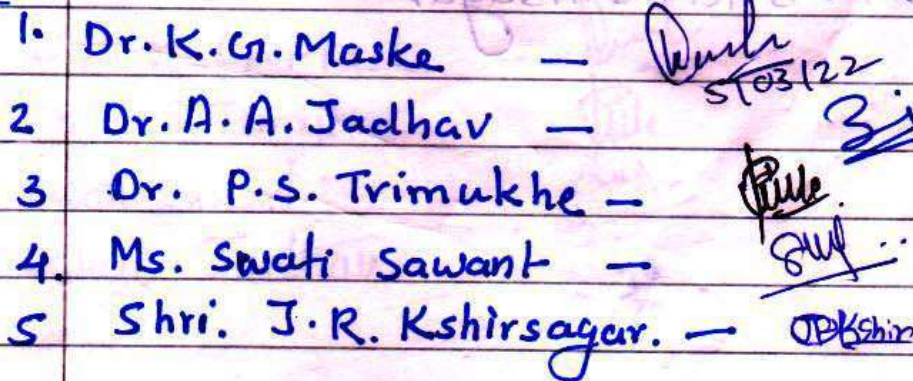 1. Dr. K. G. Maske — 5/03/22
2 Dr. A. A. Jadhav —
3 Dr. P. S. Trimukhe —
4. Ms. Swati Sawant —
5 Shri. J. R. Kshirsagar. —